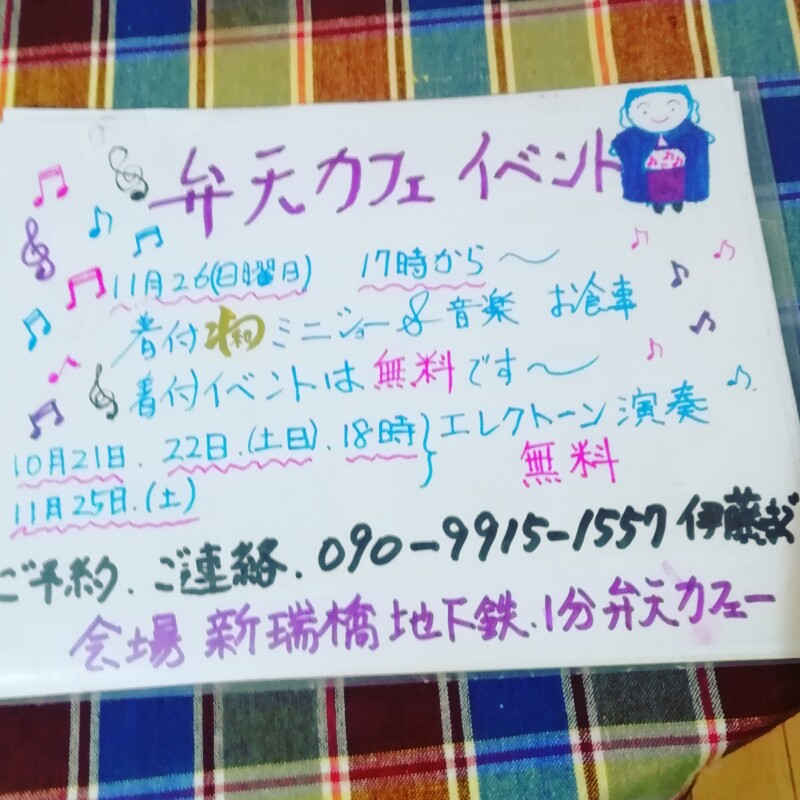 弁天カフェ イベント
11月26(日曜日) 17時から〜
着付 和 ミニショー & 音楽 お食事
着付イベントは無料です〜
10月21日. 22日.(土日). 18時 } エレクトーン演奏
11月25日.(土) 無料
ご予約. ご連絡. 090-9915-1557 伊藤まで
会場 新瑞橋 地下鉄. 1分 弁天カフェー